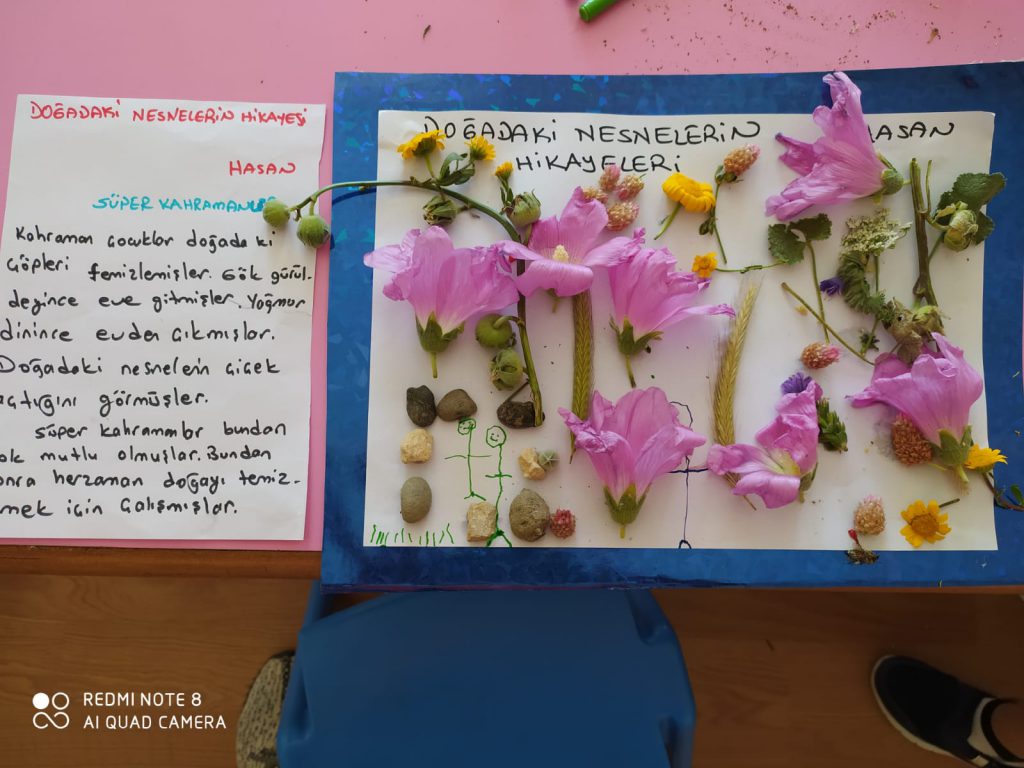 DOĞADAKİ NESNELERİN HİKAYESİ
HASAN
SÜPER KAHRAMANLAR
Kahraman çocuklar doğada ki
çöpleri temizlemişler. Gök gürül-
deyince eve gitmişler. Yağmur
dinince evden çıkmışlar.
Doğadaki nesnelerin çiçek
açtığını görmüşler.
süper kahramanlar bundan
ok mutlu olmuşlar. Bundan
onra herzaman doğayı temiz-
mek için çalışmışlar.
DOĞADAKİ NESNELERİN HASAN
HİKAYELERİ
REDMI NOTE 8
AI QUAD CAMERA